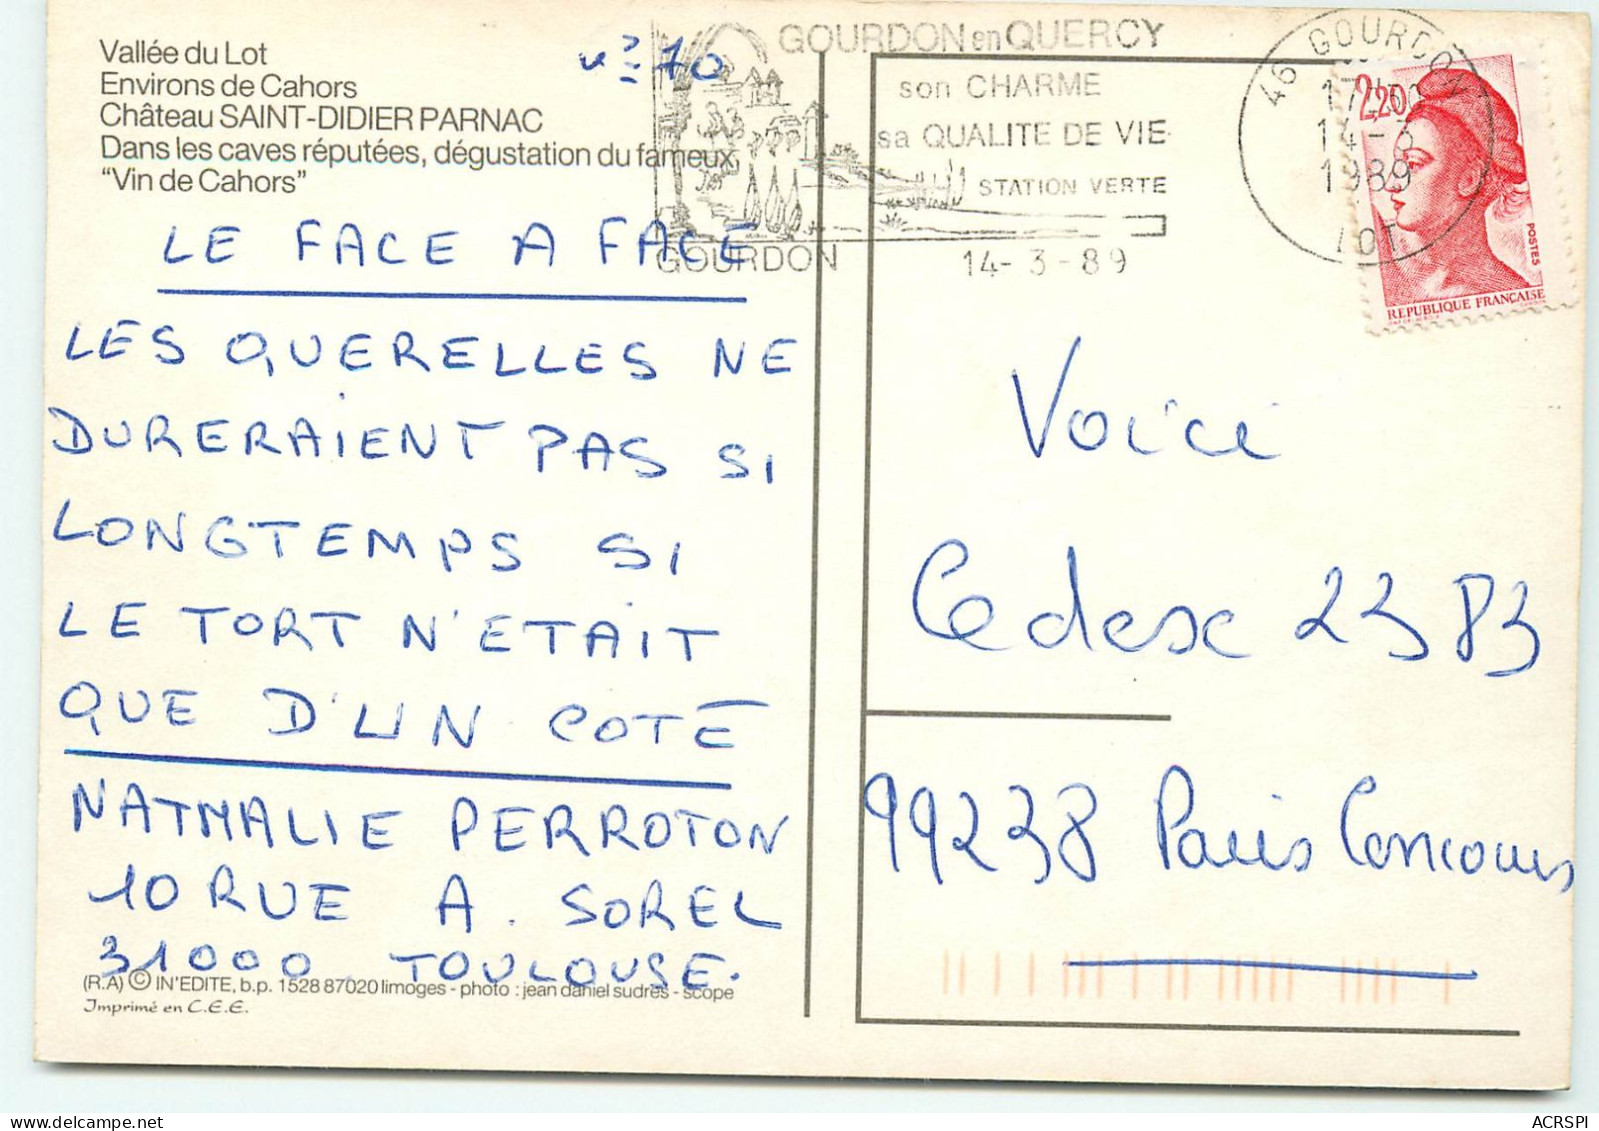 Vallée du Lot
Environs de Cahors
Château SAINT-DIDIER PARNAC
Dans les caves réputées, dégustation du fameux
"Vin de Cahors"
70
LE FACE A FACE
LES QUERELLES NE
DURERAIENT PAS SI
LONGTEMPS SI
LE TORT N'ETAIT
QUE D'UN COTÉ
NATHALIE PERROTON
10 RUE A. SOREL
31000 TOULOUSE.
(R.A) © IN'EDITE, b.p. 1528 87020 limoges - photo : jean daniel sudres - scope
Imprimé en C.E.E.
GOURDON en QUERCY
son CHARME
sa QUALITE DE VIE
STATION VERTE
GOURDON
14-3-89
46 GOURDON
14-3
1989
LOT
2,20
POSTES
REPUBLIQUE FRANÇAISE
Voici
Cedex 2383
99238 Paris Concours
ACRSPI